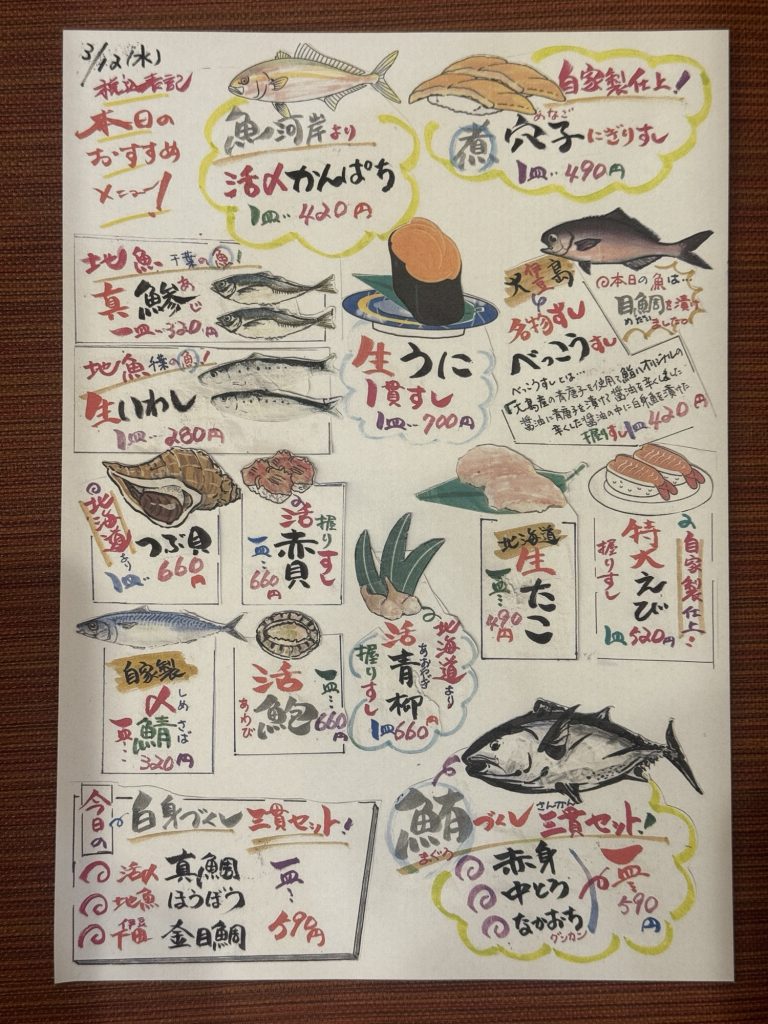 3/12(水)
税込表記
本日の
おすすめ
メニュー!
魚河岸より
活〆かんぱち
1皿‥420円
自家製仕上!
あなご
煮穴子にぎりすし
1皿‥490円
地魚千葉の魚!
あじ
真鯵
一皿‥320円
地魚千葉の魚!
生いわし
1皿‥280円
生うに
1貫すし
1皿‥700円
伊豆大島
名物ずし
べっこうすし
本日の魚は‥
目鯛を漬け
めだい ましたっ
べっこうすしとは‥‥
大島産の青唐子を使用で鮨八オリジナルの
醤油に青唐子を漬けて醤油を辛くしました
辛くした醤油の中に白身魚を漬けた
握りすし1皿420円
北海道より
つぶ貝
1皿‥660円
活赤貝
握りすし
一皿‥660円
北海道より
活青柳
あおやぎ
握りすし
1皿660円
北海道
生たこ
一皿‥490円
自家製仕上‥
特大えび
握りすし
1皿520円
自家製
〆鯖
しめさば
一皿‥
320円
活鮑
あわび
一皿‥660円
今日の
白身づくし三貫セット!
活〆真鯛
地魚ほうぼう
伊豆下田金目鯛
一皿‥590円
鮪づくし三貫セット!
まぐろ
さんかん
赤身
中とろ
なかおち
グンカン
一皿‥590円